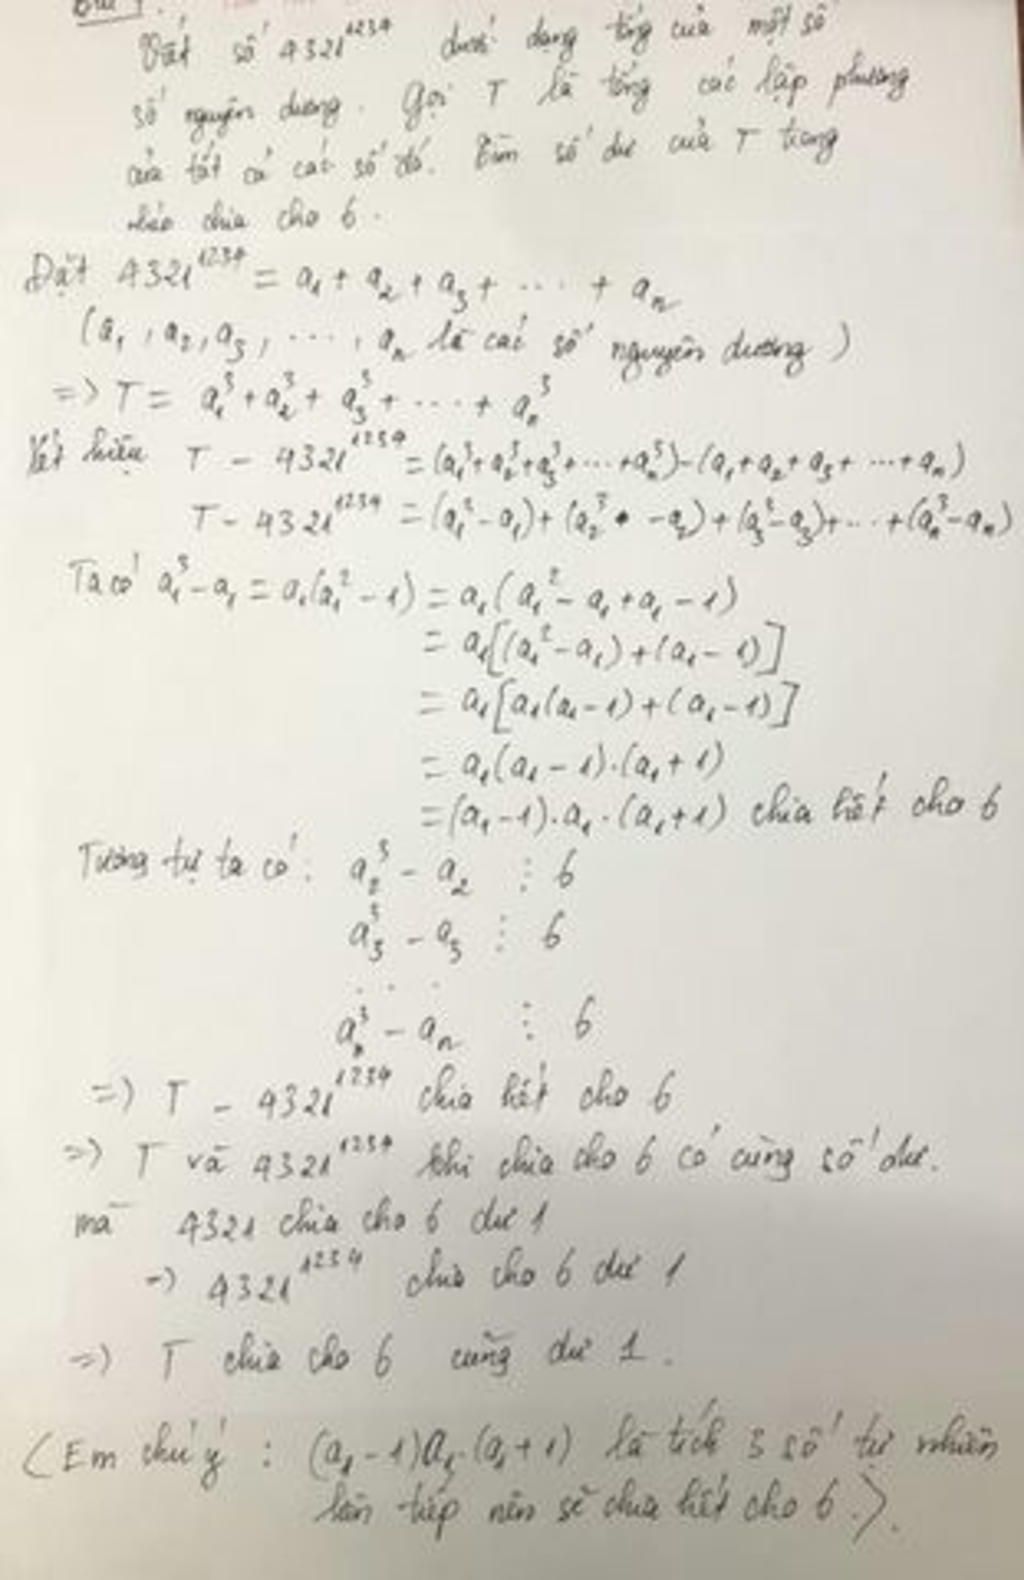 Bài 1:
Viết số 4321^1234 dưới dạng tổng của một số
số nguyên dương. Gọi T là tổng các lập phương
của tất cả các số đó. Tìm số dư của T trong
chia cho 6.
Đặt 4321^1234 = a₁ + a₂ + a₃ + ... + aₙ
(a₁, a₂, a₃, ..., aₙ là các số nguyên dương)
=> T = a₁³ + a₂³ + a₃³ + ... + aₙ³
Xét hiệu T - 4321^1234 = (a₁³+a₂³+a₃³+...+aₙ³)-(a₁+a₂+a₃+...+aₙ)
T - 4321^1234 = (a₁³-a₁)+(a₂³ -a₂)+(a₃³-a₃)+...+(aₙ³-aₙ)
Ta có a₁³-a₁ = a₁(a₁²-1) = a₁(a₁²-a₁+a₁-1)
= a₁[(a₁²-a₁)+(a₁-1)]
= a₁[a₁(a₁-1)+(a₁-1)]
= a₁(a₁-1).(a₁+1)
=(a₁-1).a₁.(a₁+1) chia hết cho 6
Tương tự ta có: a₂³ - a₂ ⋮ 6
a₃³ - a₃ ⋮ 6
. . .
aₙ³ - aₙ ⋮ 6
=> T - 4321^1234 chia hết cho 6
=> T và 4321^1234 khi chia cho 6 có cùng số dư.
mà 4321 chia cho 6 dư 1
=> 4321^1234 chia cho 6 dư 1
=> T chia cho 6 cũng dư 1.
(Em chú ý: (a₁-1)a₁.(a₁+1) là tích 3 số tự nhiên
liên tiếp nên sẽ chia hết cho 6).